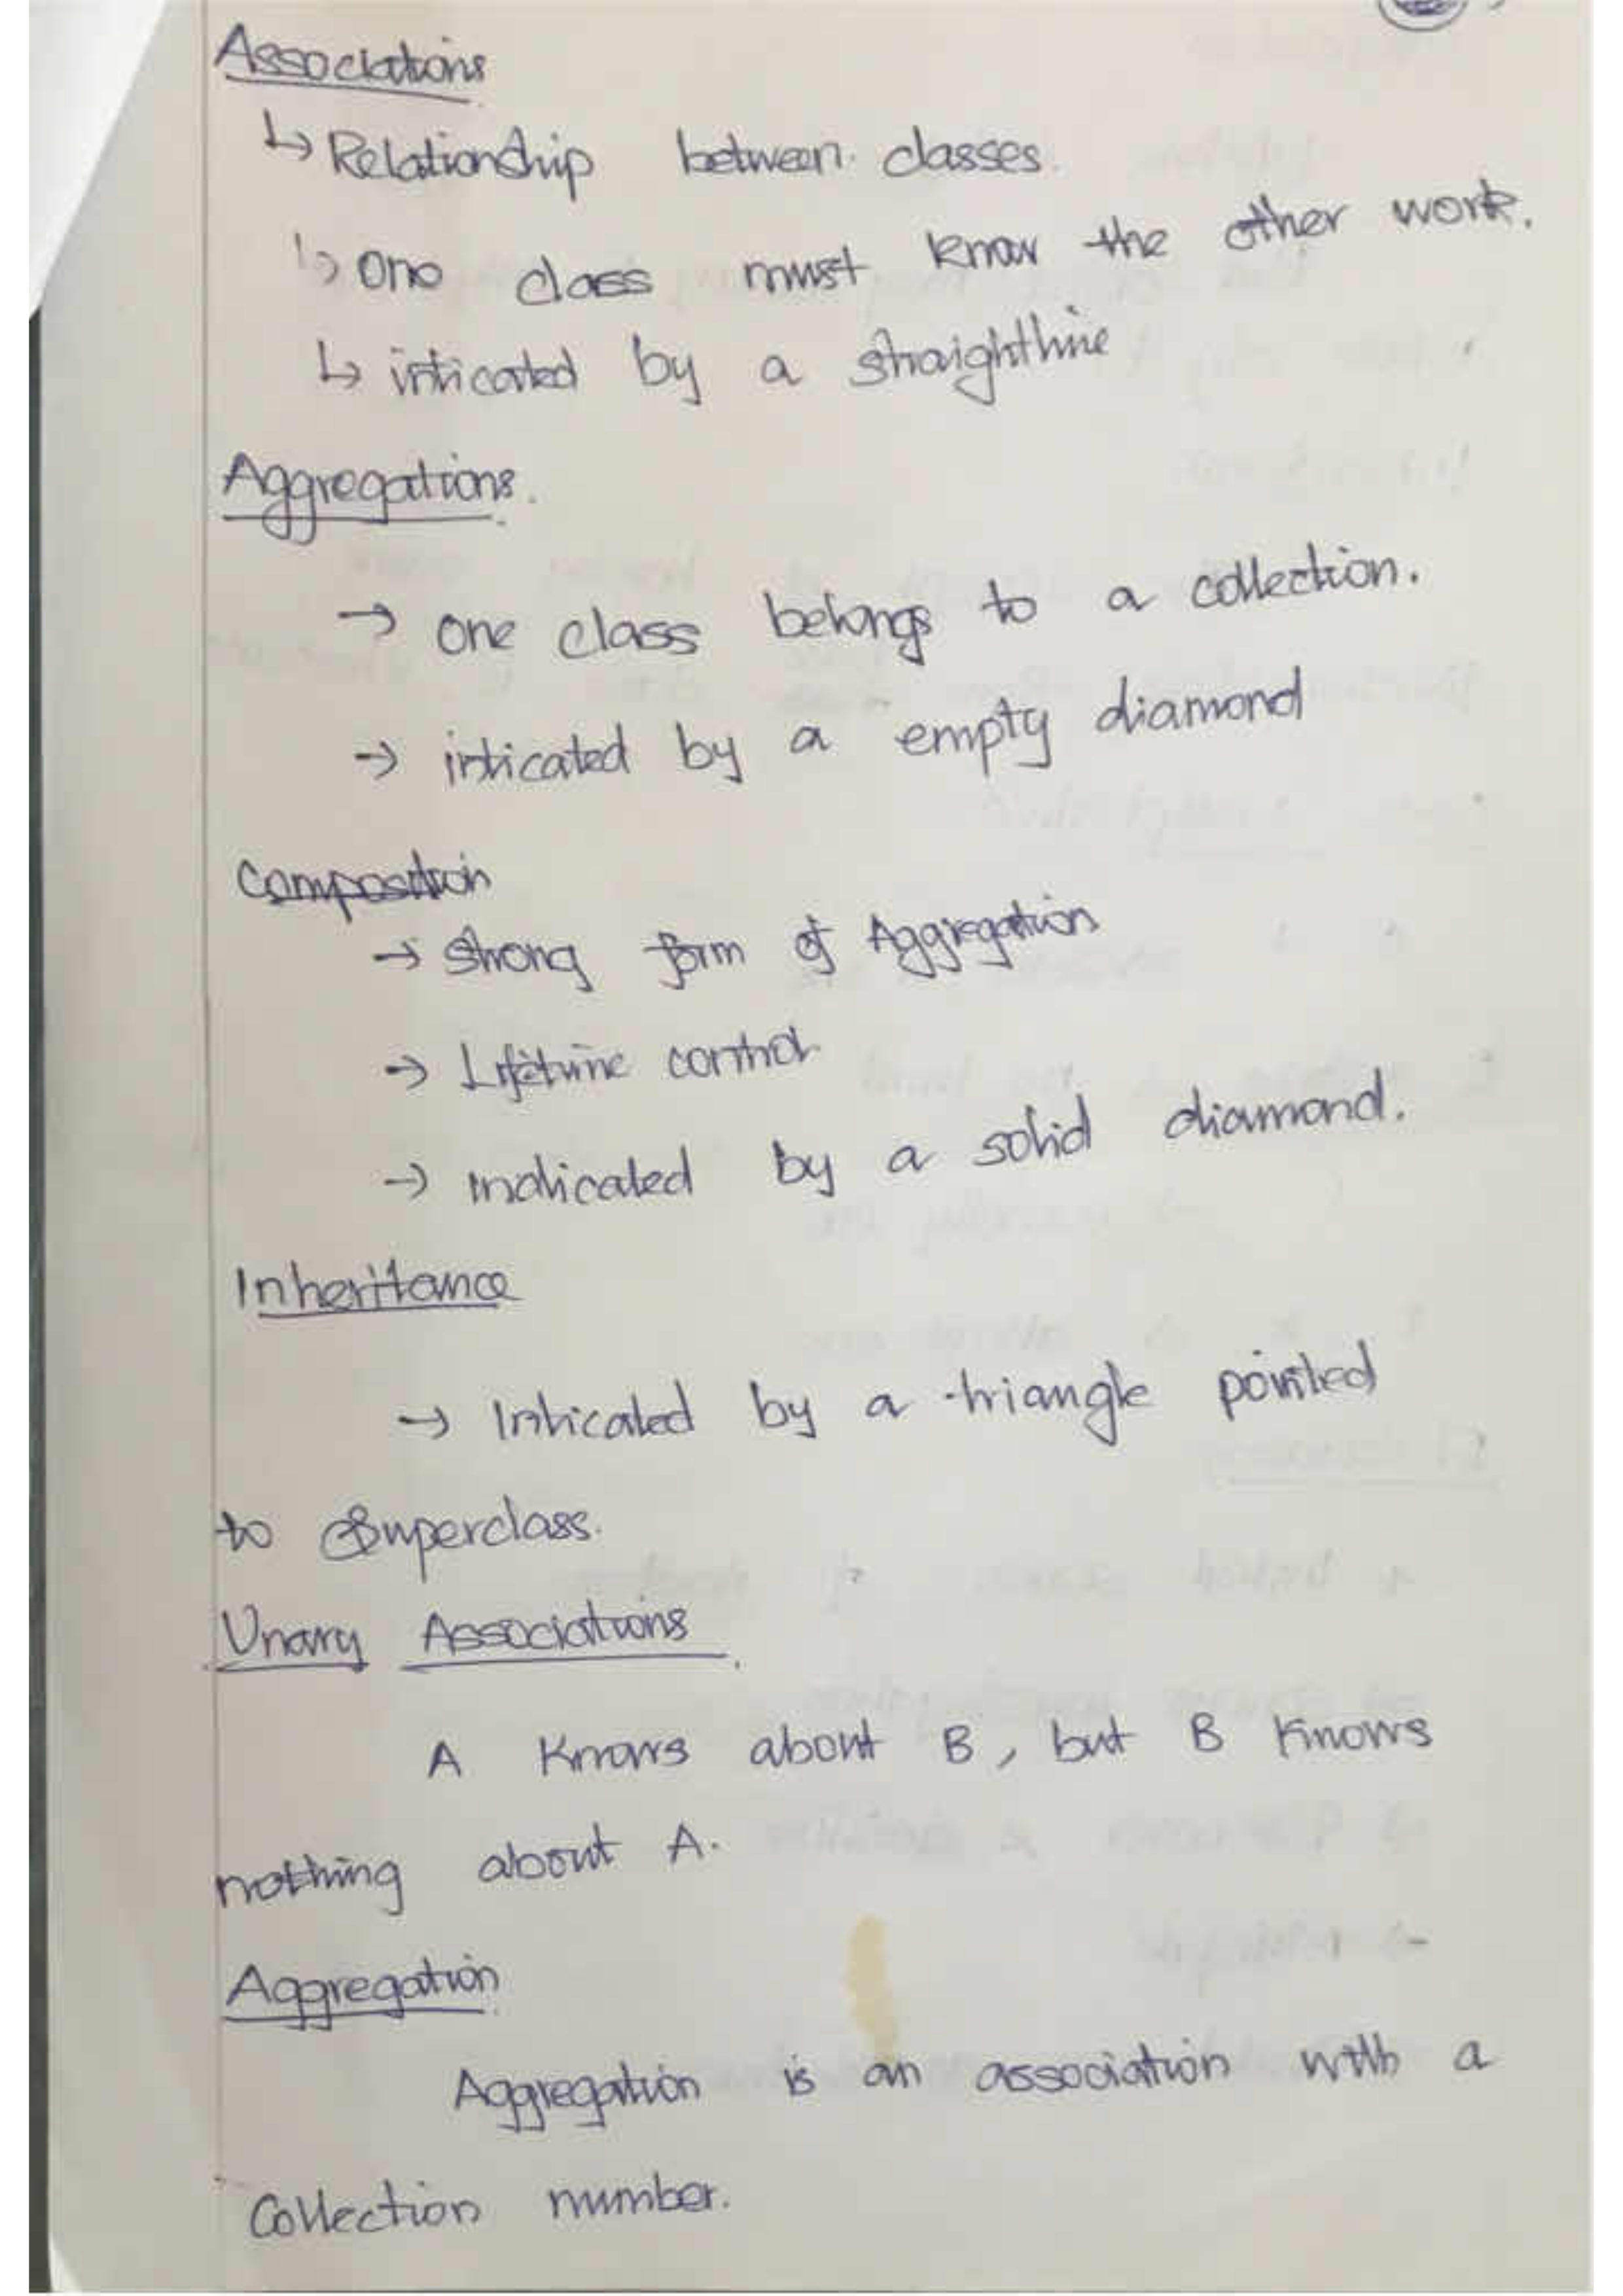 Associations
↳ Relationship between classes.
↳ One class must know the other work.
↳ inticated by a straightline
Aggregations.
→ one class belongs to a collection.
→ inticated by a empty diamond
Composition
→ Strong form of Aggregation
→ Lifetime control
→ indicated by a solid diamond.
Inheritance
→ Inticated by a triangle pointed
to Superclass.
Unary Associations.
A Knows about B, but B Knows
nothing about A.
Aggregation
Aggregation is an association with a
Collection number.